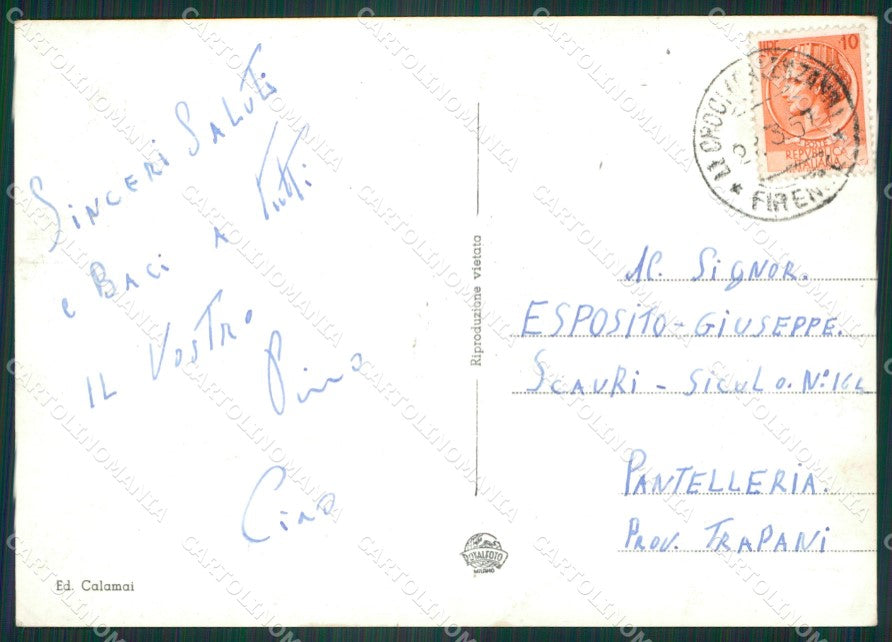 SINCERI SALUTI
e BACI A TUTTI
IL VOSTRO
Pino
Ciao
Ed. Calamai
Riproduzione vietata
ROTALFOTO
MILANO
LIRE 10
POSTE
REPUBBLICA
ITALIANA
FIREN
Al. SIGNOR.
ESPOSITO-GIUSEPPE.
SCAURI - SICULO. N:164
PANTELLERIA.
PROV. TRAPANI
CARTOLINOMANIA